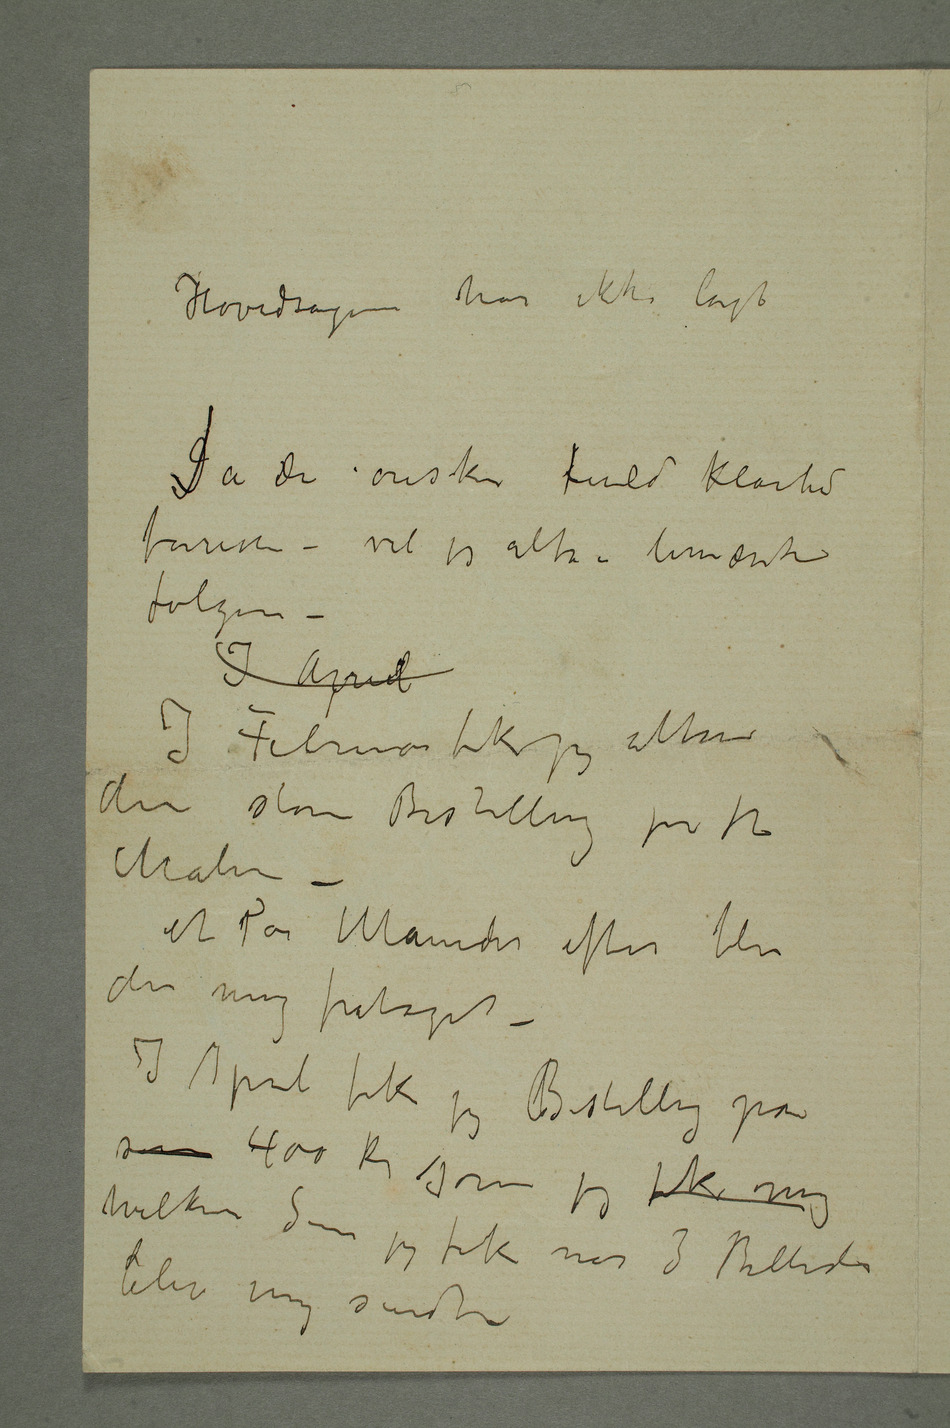 Hovedsagen har ikke
Da De ønsker fuld Klarhed
forresten – vil jeg altsaa bemærke
følgene –
I April
I Februar fik jeg altsaa
den store Bestilling paa fl
Malen –
et Par Maaneder efter blev
den mig frataget –
I April fik jeg Bestilling paa
som 400 Kr som jeg fik mig
hvilken Sum jeg fik naar 3 Billeder
blev mig sendte